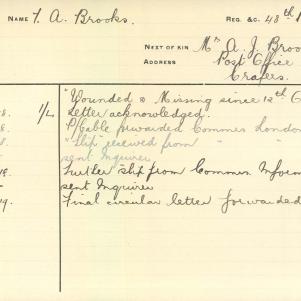 NAME F. A. Brooks. REG. &C. 48th
NEXT OF KIN Mrs A. J. Broo
ADDRESS Post Office
Crafers.
"Wounded & Missing since 12th
8. 1/4 Letter acknowledged.
8. P/Cable forwarded Commrs London
8. "slip" received from " "
sent Inquirer
19. Further slip from Commrs Inform
sent Inquirer
19. Final circular letter forwarded